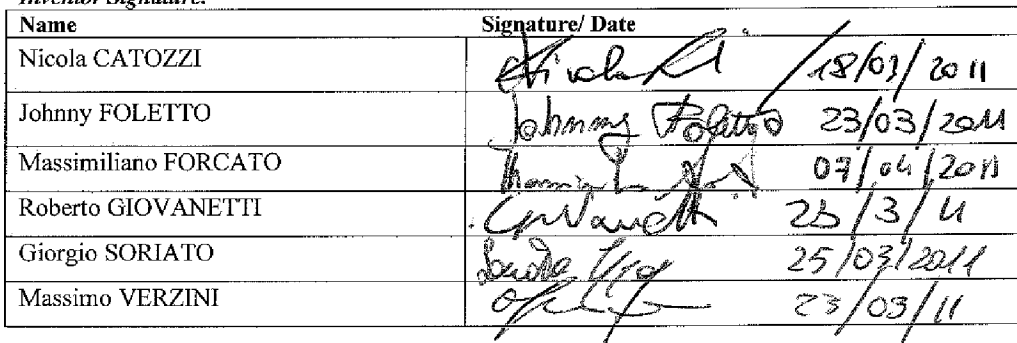 Inventor Signature:
Name Signature/ Date
Nicola CATOZZI /18/03/2011
Johnny FOLETTO Johnny Foletto 23/03/2011
Massimiliano FORCATO 07/04/2011
Roberto GIOVANETTI Giovanetti 25/3/11
Giorgio SORIATO 25/03/2011
Massimo VERZINI 23/03/11